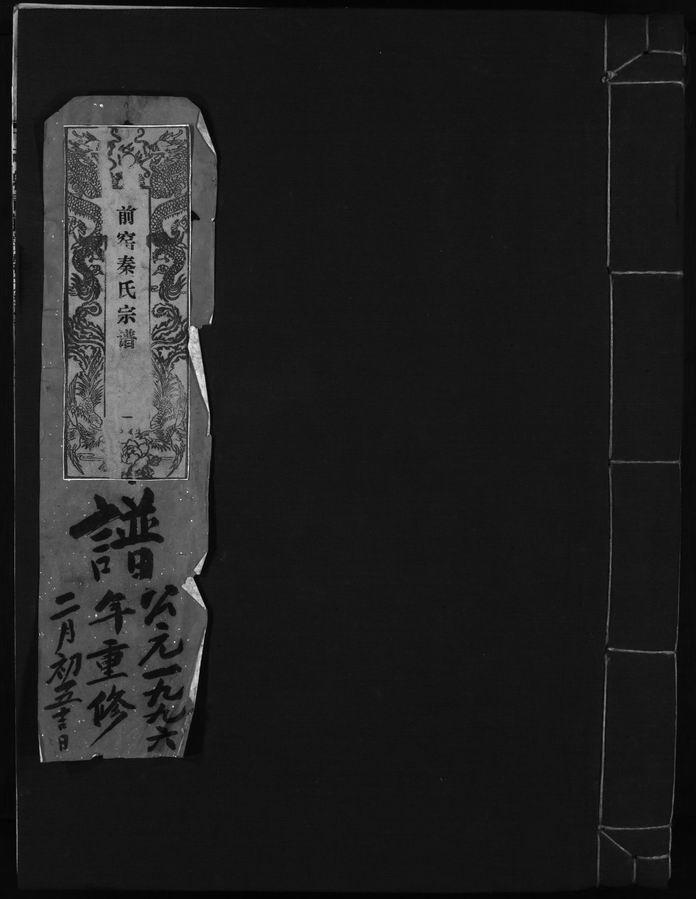 前窑秦氏宗譜
一
譜
公元一九九六
年重修
二月初五吉日